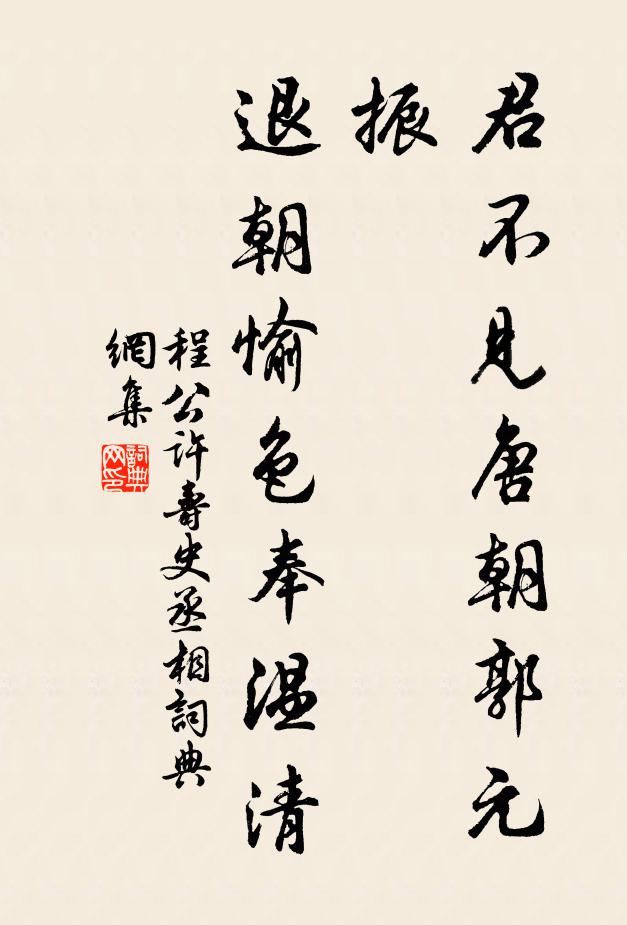 君不見唐朝郭元
振
退朝愉色奉温清
程公許壽史丞相詞典
網集
詞典網印